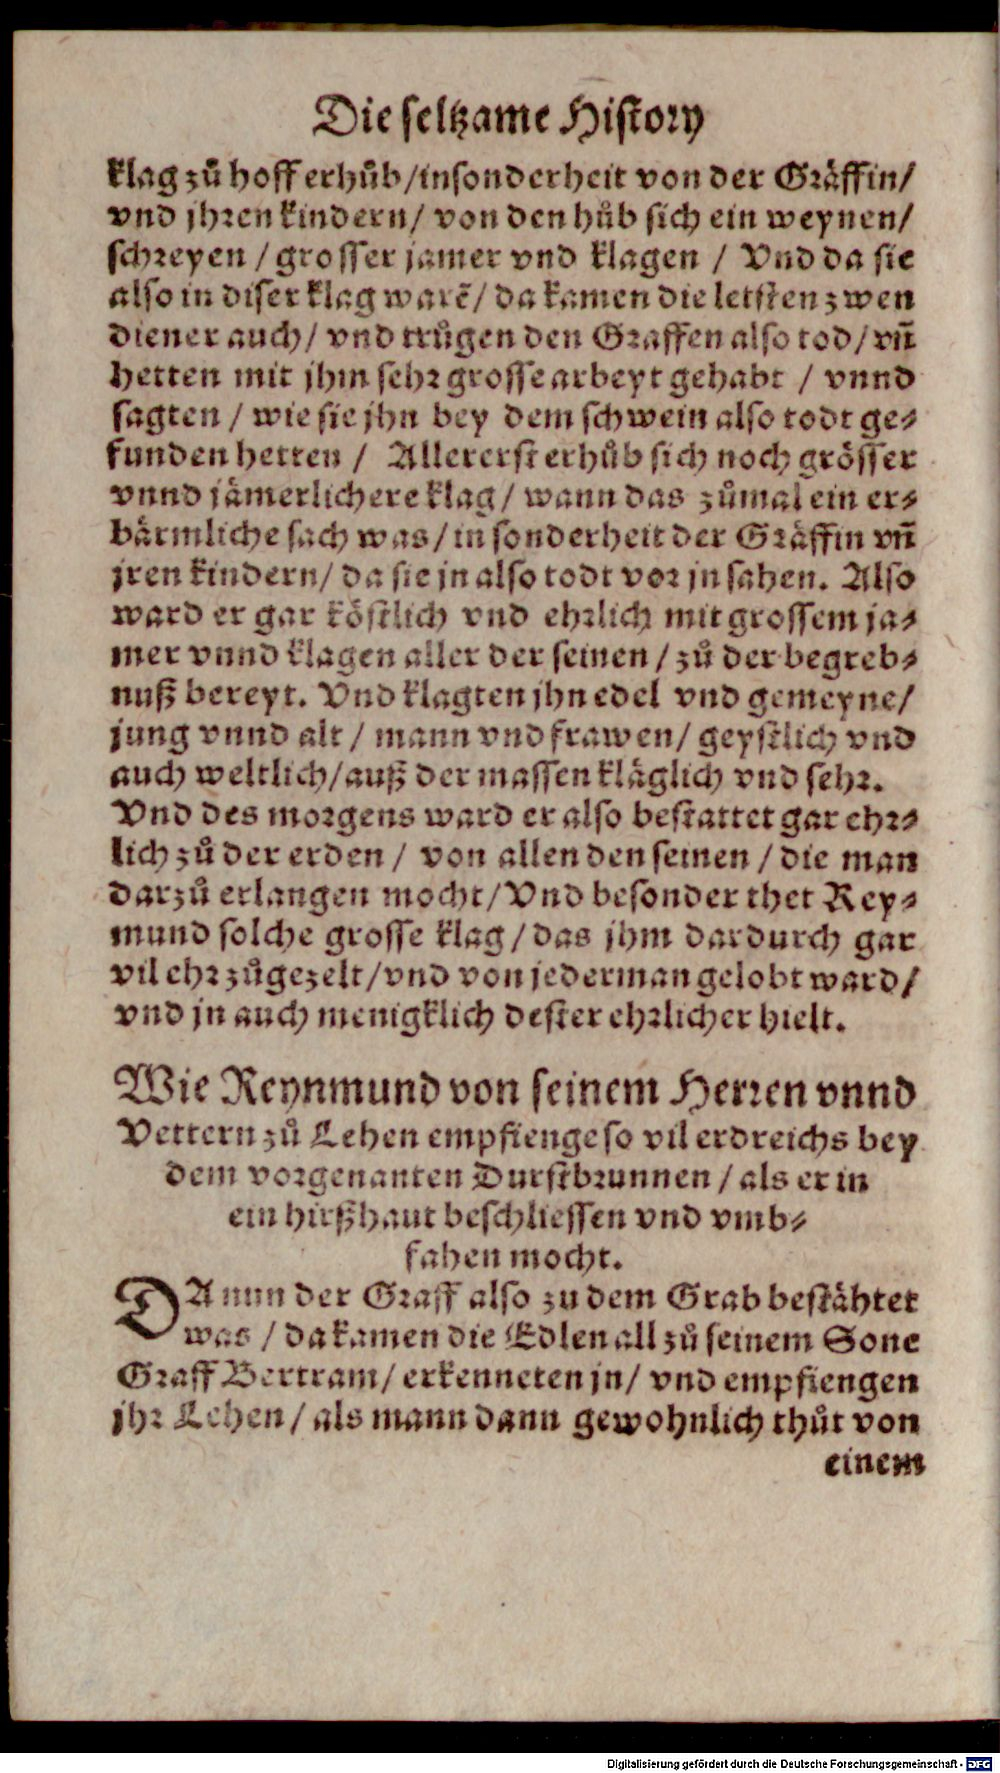 Die seltzame History
klag zů hoff erhůb/insonderheit von der Gräffin/
vnd jhren kindern/ von den hůb sich ein weynen/
schreyen / grosser jamer vnd klagen / Vnd da sie
also in diser klag warẽ/ da kamen die letsten zwen
diener auch/ vnd trůgen den Graffen also tod/ vñ
hetten mit jhm sehr grosse arbeyt gehabt / vnnd
sagten / wie sie jhn bey dem schwein also todt ge-
funden hetten / Allererst erhůb sich noch grösser
vnnd jämerlichere klag/ wann das zůmal ein er-
bärmliche sach was/ in sonderheit der Gräffin vñ
jren kindern/ da sie jn also todt vor jn sahen. Also
ward er gar köstlich vnd ehrlich mit grossem ja-
mer vnnd klagen aller der seinen / zů der begreb-
nuß bereyt. Vnd klagten jhn edel vnd gemeyne/
jung vnnd alt / mann vnd frawen/ geystlich vnd
auch weltlich/auß der massen kläglich vnd sehr.
Vnd des morgens ward er also bestattet gar ehr-
lich zů der erden / von allen den seinen / die man
darzů erlangen mocht/Vnd besonder thet Rey-
mund solche grosse klag/das jhm dardurch gar
vil ehr zůgezelt/vnd von jederman gelobt ward/
vnd jn auch menigklich dester ehrlicher hielt.
Wie Reynmund von seinem Herren vnnd
Vettern zů Lehen empfienge so vil erdreichs bey
dem vorgenanten Durstbrunnen / als er in
ein hirßhaut beschliessen vnd vmb-
fahen mocht.
DA nun der Graff also zu dem Grab bestähtet
was / da kamen die Edlen all zů seinem Sone
Graff Bertram/ erkenneten jn/ vnd empfiengen
jhr Lehen/ als mann dann gewohnlich thůt von
einem
Digitalisierung gefördert durch die Deutsche Forschungsgemeinschaft - DFG